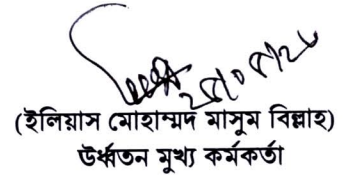 (ইলিয়াস মোহাম্মদ মাসুম বিল্লাহ)
উর্ধ্বতন মুখ্য কর্মকর্তা